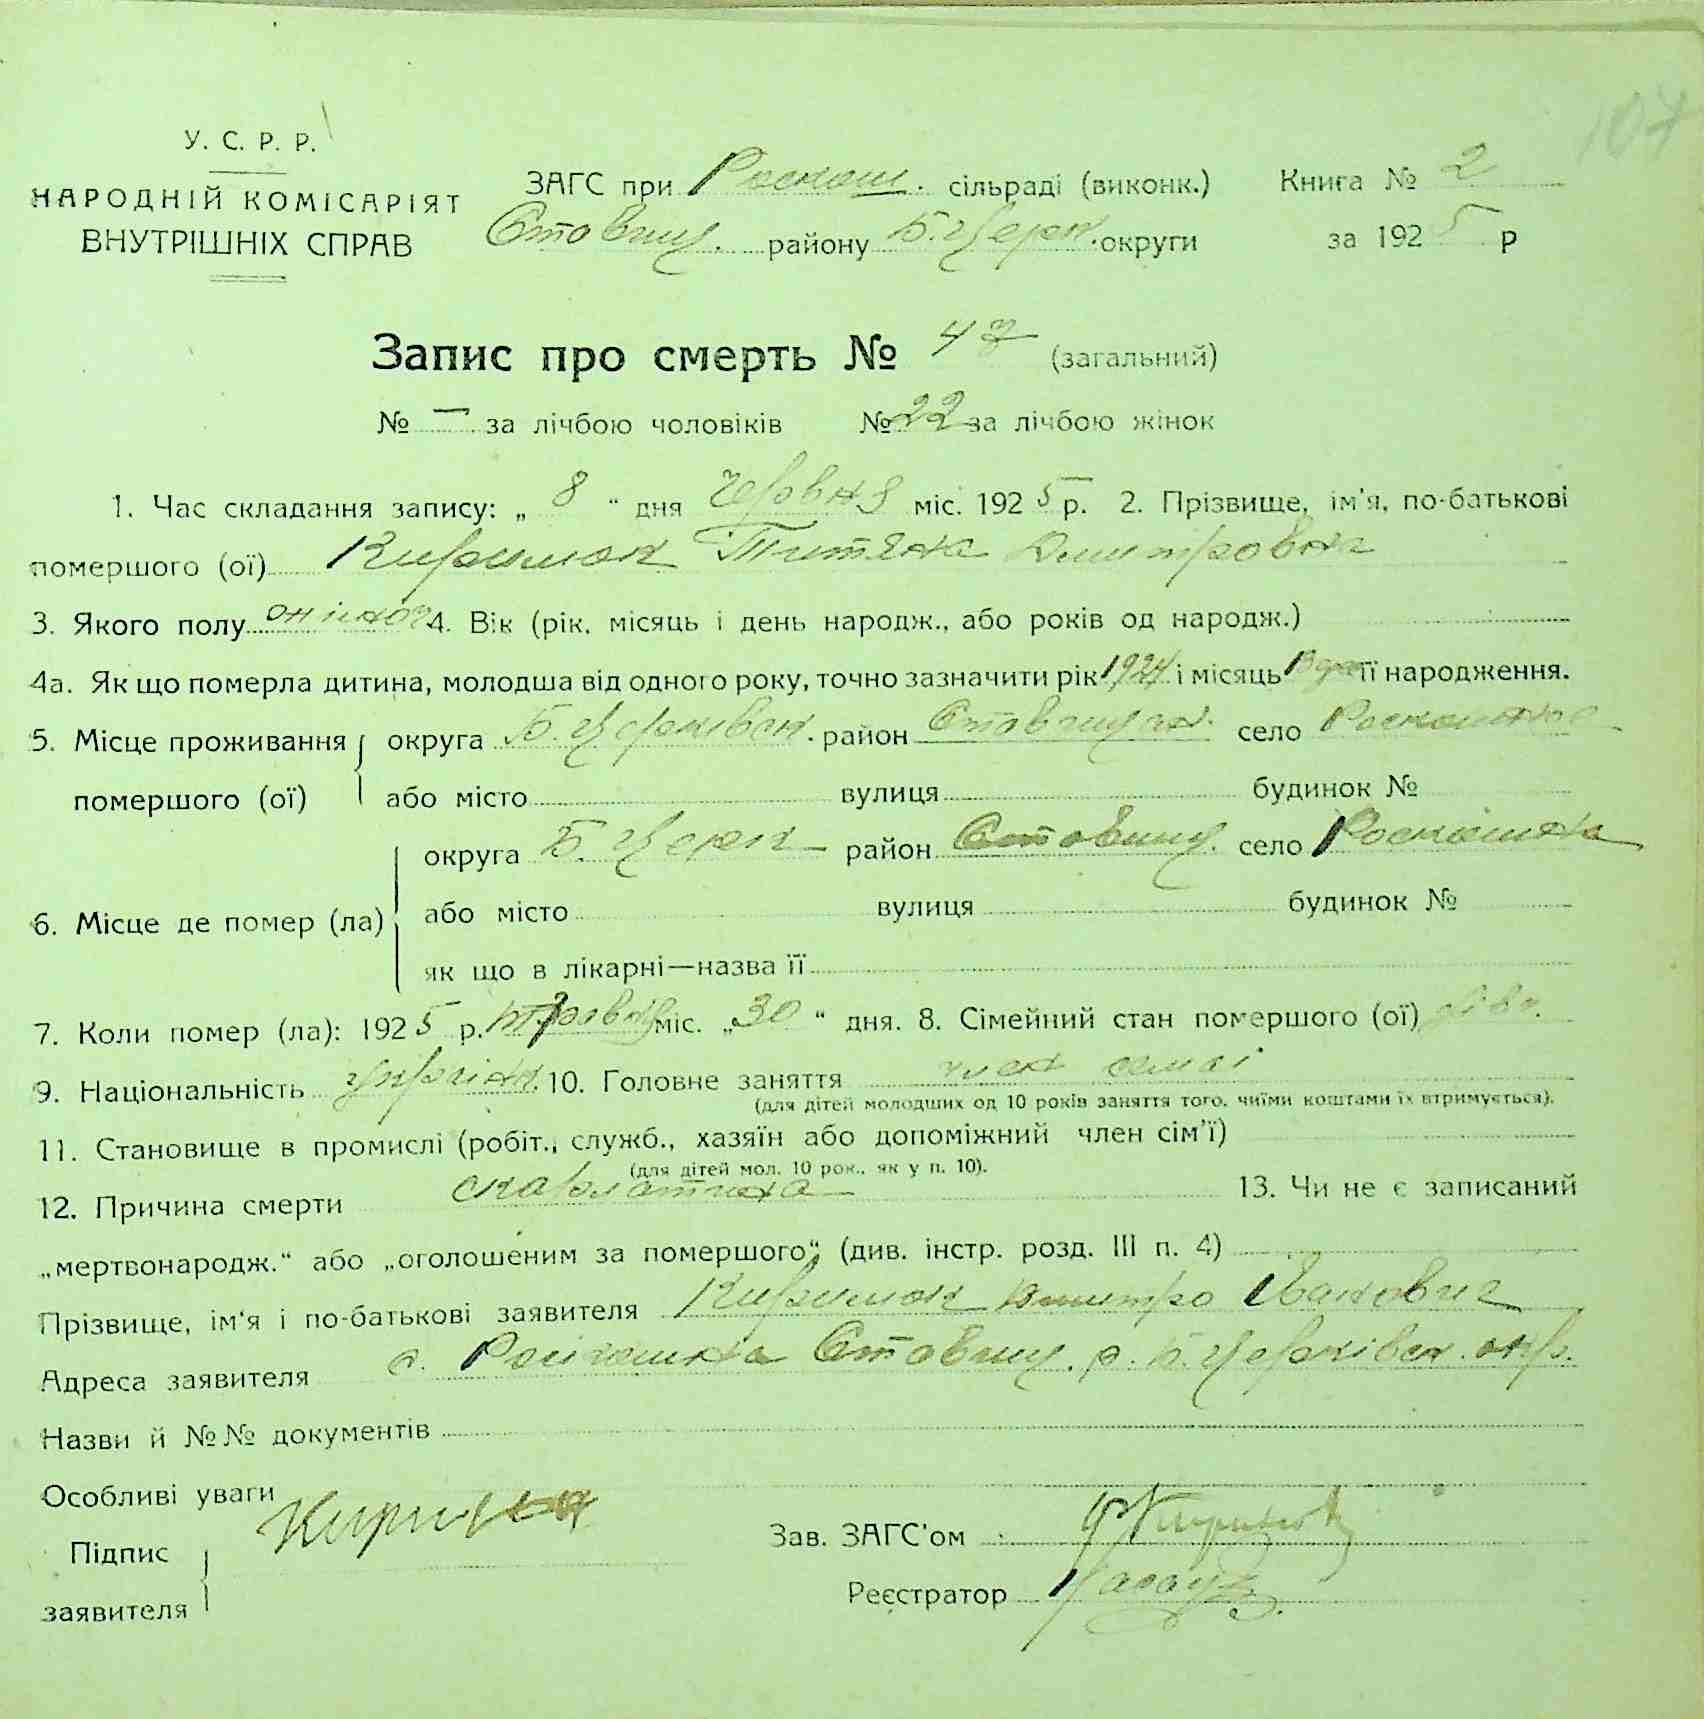 107
У. С. Р. Р.
НАРОДНІЙ КОМІСАРІЯТ
ВНУТРІШНІХ СПРАВ
ЗАГС при Роскош. сільраді (виконк.) Книга № 2
Ставищ. району Б. Церк. округи за 1925 р
Запис про смерть № 47 (загальний)
№ — за лічбою чоловіків № 22 за лічбою жінок
1. Час складання запису: „ 8 “ дня червня міс. 1925 р. 2. Прізвище, ім'я, по-батькові
помершого (ої) Киримок Титяна Дмитровна
3. Якого полу жіночг 4. Вік (рік, місяць і день народж., або років од народж.)
4а. Як що померла дитина, молодша від одного року, точно зазначити рік 1924 і місяць її народження.
5. Місце проживання помершого (ої) округа Б. Церківськ. район Ставищан. село Роскошна
або місто вулиця будинок №
6. Місце де помер (ла) округа Б. Церк район Ставищ. село Роскошна
або місто вулиця будинок №
як що в лікарні—назва її
7. Коли помер (ла): 1925 р. травня міс. „30“ дня. 8. Сімейний стан помершого (ої) дівч.
9. Національність украін. 10. Головне заняття член семї
(для дітей молодших од 10 років заняття того, чиїми коштами їх втримується).
11. Становище в промислі (робіт., служб., хазяїн або допоміжний член сім'ї)
(для дітей мол. 10 рок., як у п. 10).
12. Причина смерти скарлатина 13. Чи не є записаний
„мертвонародж.“ або „оголошеним за помершого“ (див. інстр. розд. III п. 4)
Прізвище, ім'я і по-батькові заявителя Киримок Дмитро Іванович
Адреса заявителя с. Роскошна Ставищ. р. Б. Церківськ. окр.
Назви й №№ документів
Особливі уваги
Підпис заявителя
Зав. ЗАГС'ом
Реєстратор